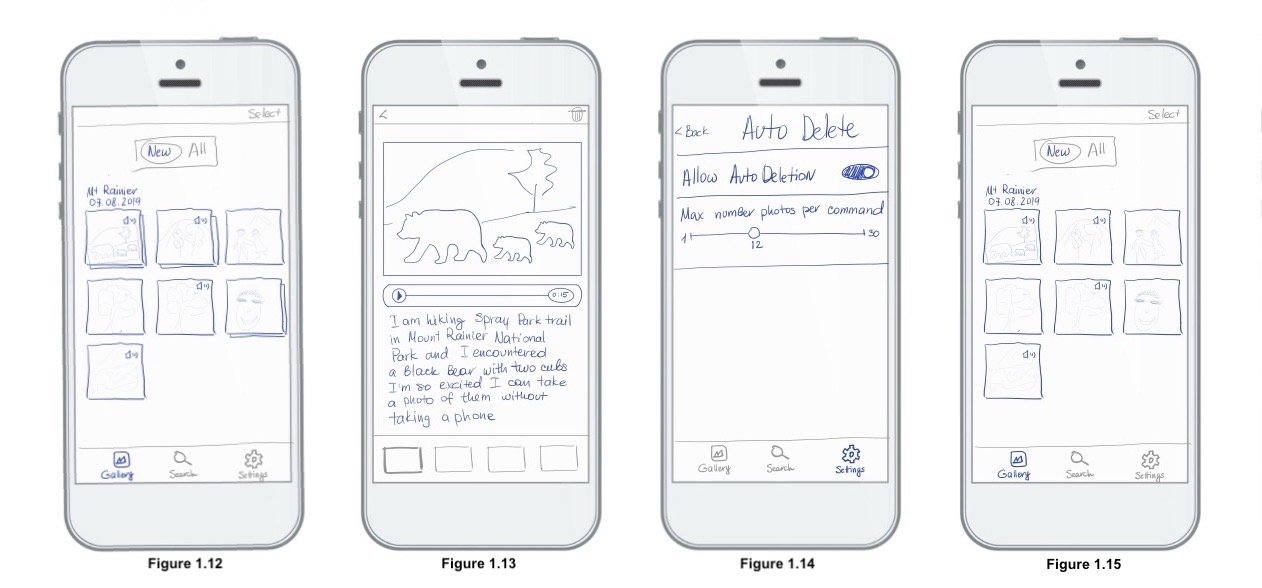 Select
New All
Mt Rainier
07.08.2019
Gallery Search Settings
Figure 1.12
<
0:15
I am hiking Spray Park trail
in Mount Rainier National
Park and I encountered
a Black Bear with two cubs
I'm so excited I can take
a photo of them without
taking a phone
Figure 1.13
< Back Auto Delete
Allow Auto Deletion
Max number photos per command
1 12 30
Gallery Search Settings
Figure 1.14
Select
New All
Mt Rainier
07.08.2019
Gallery Search Settings
Figure 1.15